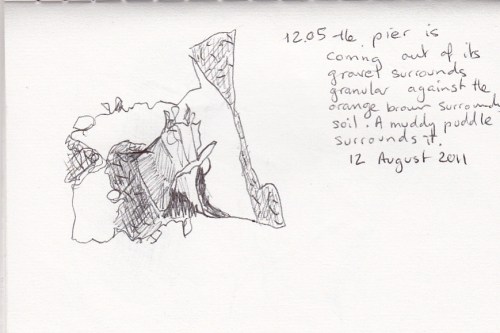 12.05 the pier is
coming out of its
gravel surrounds
granular against the
orange brown surrounding
soil. A muddy puddle
surrounds it.
12 August 2011